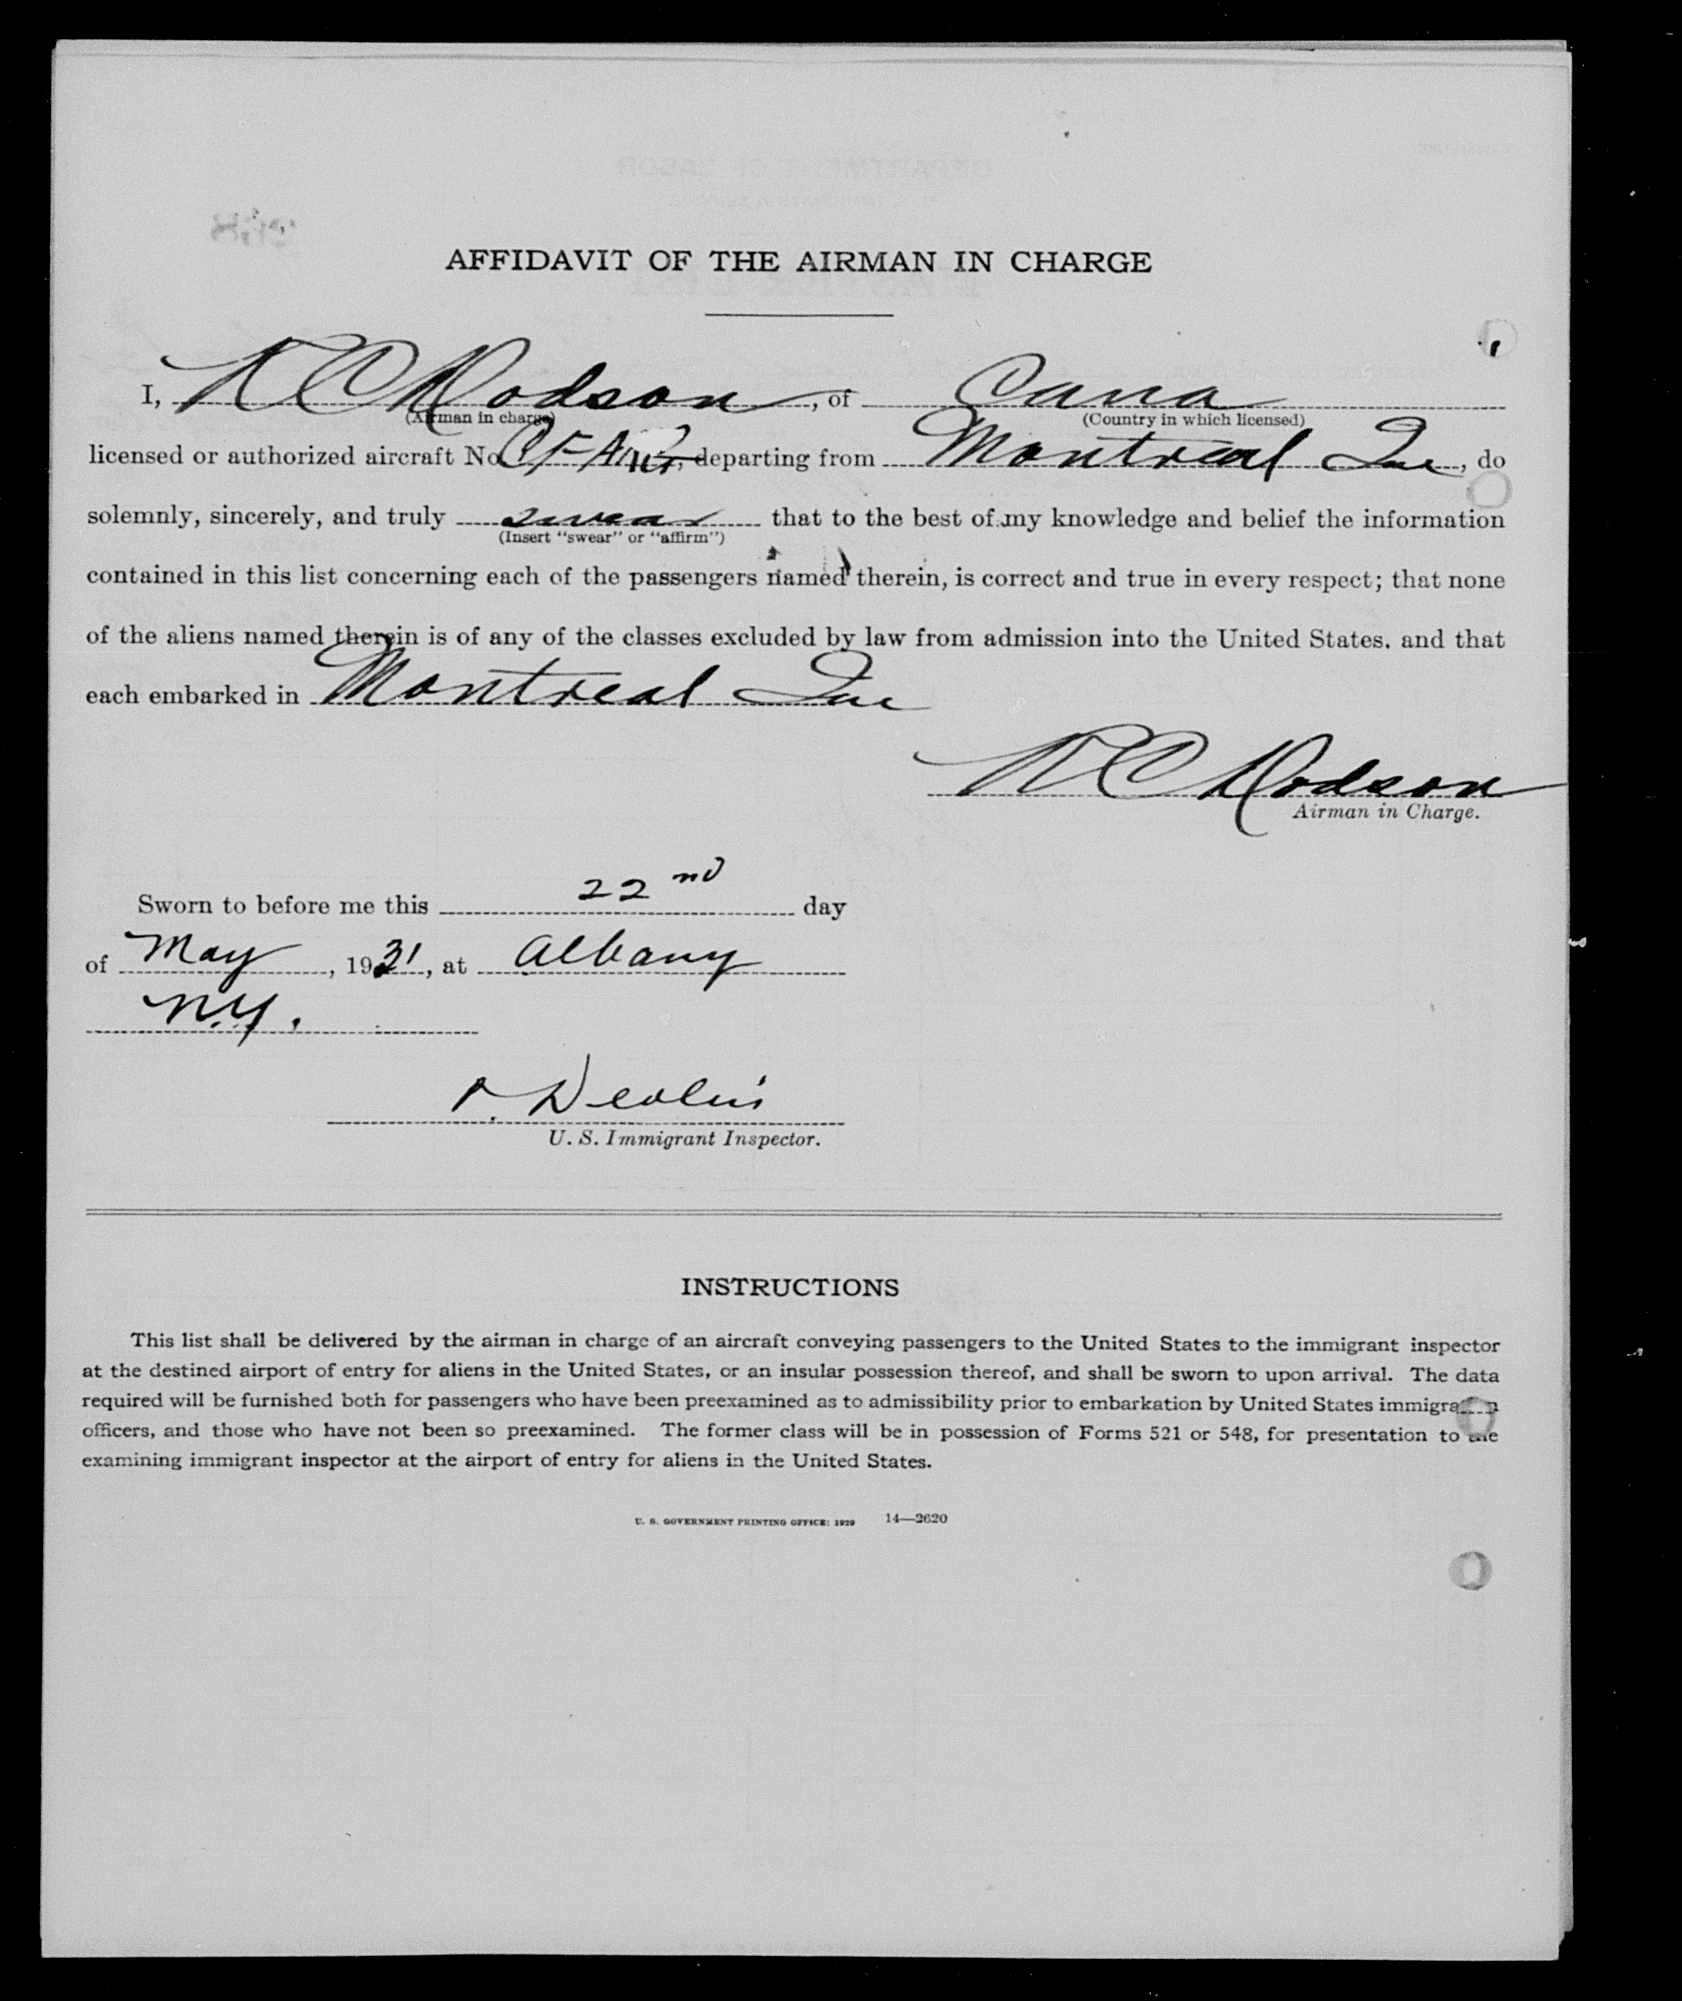 AFFIDAVIT OF THE AIRMAN IN CHARGE
I, R C Hodson, of Cana
(Airman in charge) (Country in which licensed)
licensed or authorized aircraft No. CF-A, departing from Montreal Que, do
solemnly, sincerely, and truly swear that to the best of my knowledge and belief the information
(Insert "swear" or "affirm")
contained in this list concerning each of the passengers named therein, is correct and true in every respect; that none
of the aliens named therein is of any of the classes excluded by law from admission into the United States, and that
each embarked in Montreal Que
R C Hodson
Airman in Charge.
Sworn to before me this 22nd day
of May, 1931, at Albany
N.Y.
P. Devlin
U. S. Immigrant Inspector.
INSTRUCTIONS
This list shall be delivered by the airman in charge of an aircraft conveying passengers to the United States to the immigrant inspector
at the destined airport of entry for aliens in the United States, or an insular possession thereof, and shall be sworn to upon arrival. The data
required will be furnished both for passengers who have been preexamined as to admissibility prior to embarkation by United States immigration
officers, and those who have not been so preexamined. The former class will be in possession of Forms 521 or 548, for presentation to the
examining immigrant inspector at the airport of entry for aliens in the United States.
U. S. GOVERNMENT PRINTING OFFICE: 1929 14—2620